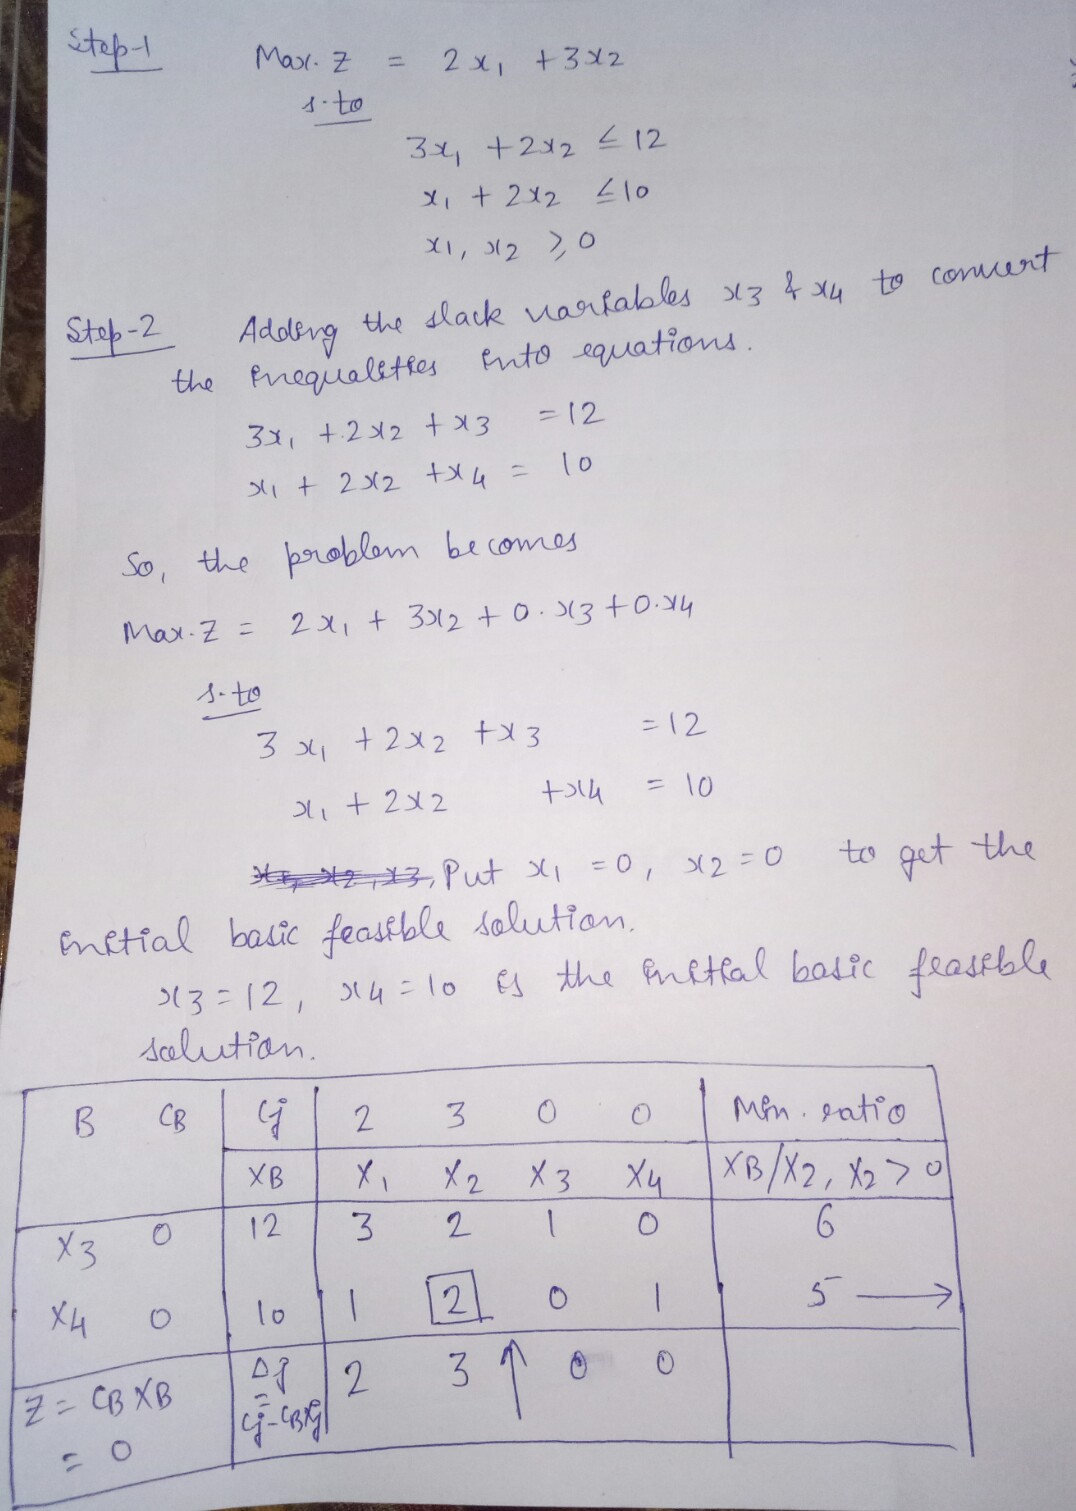 Step-1
Max. Z = 2x₁ + 3x₂
s.to
3x₁ + 2x₂ ≤ 12
x₁ + 2x₂ ≤ 10
x₁, x₂ ≥ 0
Step-2 Adding the slack variables x₃ & x₄ to convert
the inequalities into equations.
3x₁ + 2x₂ + x₃ = 12
x₁ + 2x₂ + x₄ = 10
So, the problem becomes
Max. Z = 2x₁ + 3x₂ + 0.x₃ + 0.x₄
s.to
3x₁ + 2x₂ + x₃ = 12
x₁ + 2x₂ + x₄ = 10
Put x₁ = 0, x₂ = 0 to get the
initial basic feasible solution.
x₃ = 12, x₄ = 10 is the initial basic feasible
solution.
B CB Cj 2 3 0 0 Min. ratio
XB X₁ X₂ X₃ X₄ XB/X₂, X₂ > 0
X₃ 0 12 3 2 1 0 6
X₄ 0 10 1 2 0 1 5 →
Z = CB XB Δj = Cj - CBXj 2 3 ↑ 0 0
= 0